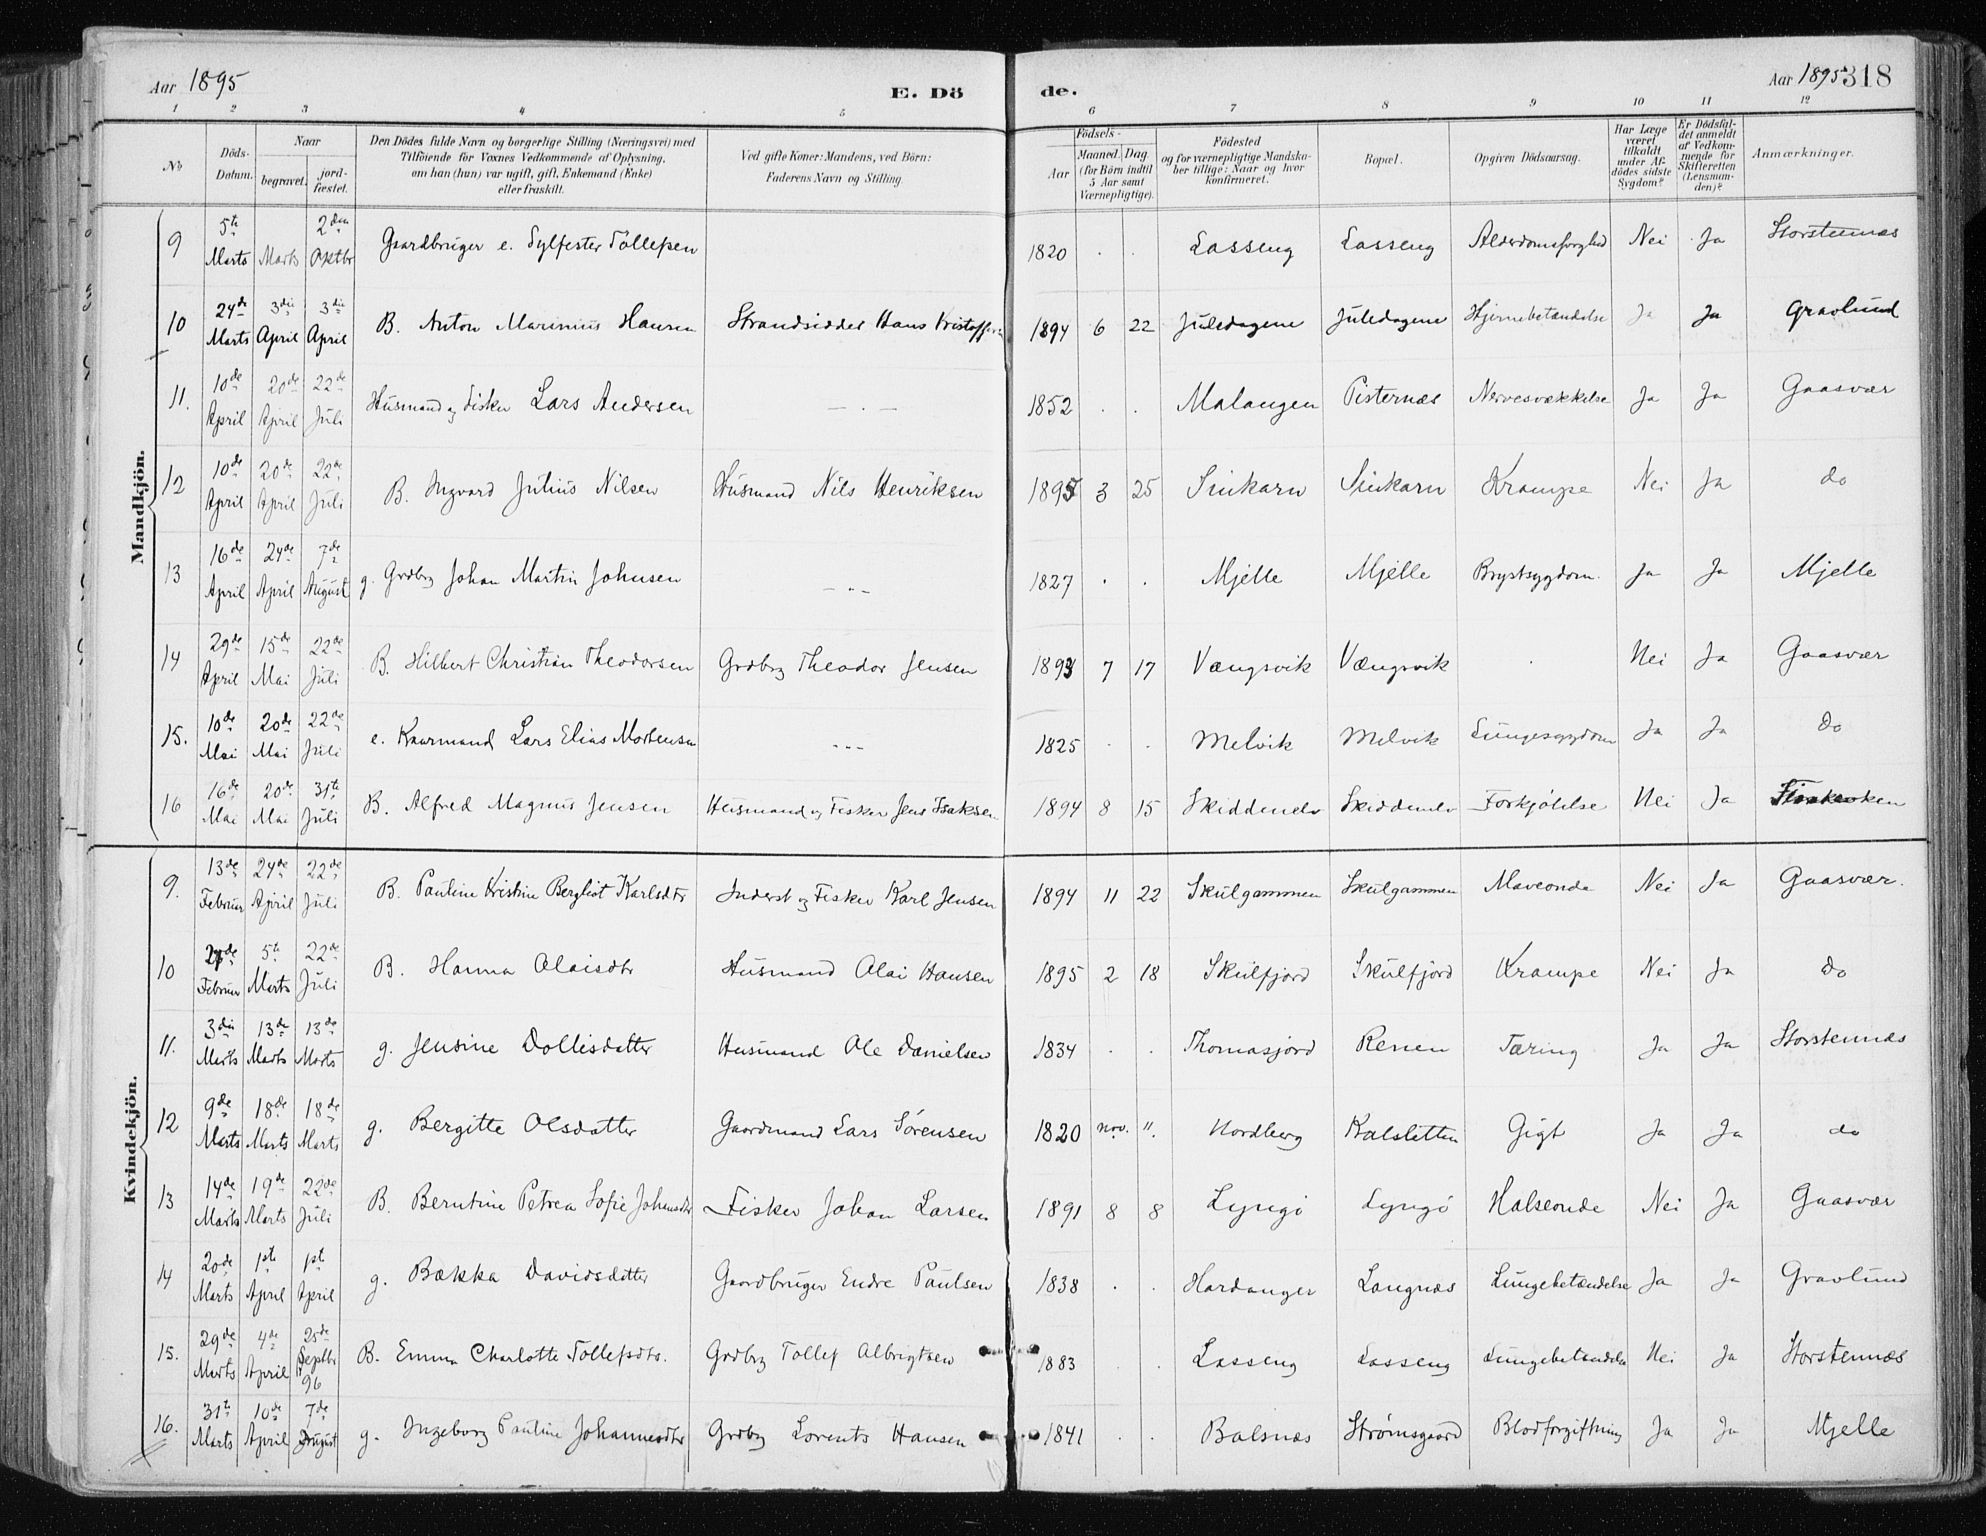 Aar 1895 E. Dö de. Aar 1895 318
1 2 3 4 5 6 7 8 9 10 11 12
No. Döds-Datum. Naar begravet. jordfæstet. Den Dödes fulde Navn og borgerlige Stilling (Næringsvei) med Tilföiende for Voxnes Vedkommende af Oplysning, om han (hun) var ugift, gift, Enkemand (Enke) eller fraskilt. Ved gifte Koner: Mandens, ved Börn: Faderens Navn og Stilling. Födsels- Aar Maaned. Dag (for Börn indtil 5 Aar samt Værnepligtige). Födested og for værnepligtige Mandskaber tillige: Naar og hvor konfirmeret. Bopæl. Opgiven Dödsaarsag. Har Læge været tilkaldt under Afdödes sidste Sygdom? Er Dödsfaldet anmeldt af Vedkommende for Skifteretten (Lensmanden)? Anmærkninger.
Mandkjön.
9 5te Marts Marts 2den Gaardbruger e. Sylfester Tollefsen 1820 . . Lasseng Lasseng Nei Ja Storstennæs
10 24de Marts 3die April 3die April B. Anton Marinius Hansen Strandsidder Hans Kristoffersen 1894 6 22 Juledagene Juledagene Hjernebetændelse Ja Ja Gravlund
11. 10de April 20de April 22de Juli Husmand og Fisker Lars Andersen — . — 1852 . . Malangen Pisternæs Nervesvækkelse Ja Ja Gaasvær
12 10de April 20de April 22de Juli B. Ingvard Julius Nilsen Husmand Nils Henriksen 1895 3 25 Sinkarn Sinkarn Krampe Nei Ja do
13 16de April 24de April 7de August g. Grdbrg Johan Martin Johnsen — " — 1827 . . Mjelle Mjelle Brystsygdom. Ja Ja Mjelle
14 29de April 15de Mai 22de Juli B. Hilbert Christian Theodorsen Grdbrg Theodor Jensen 1893 7 17 Vængsvik Vængsvik . Nei Ja Gaasvær
15. 10de Mai 20de Mai 22de Juli e. Kaarmand Lars Elias Mortensen - - - 1825 . . Melvik Melvik Lungesygdom Ja Ja Do
16 16de Mai 20de Mai 31te Juli B. Alfred Magnus Jensen Husmand og Fisker Jens Isaksen 1894 8 15 Skiddenelv Skiddenelv Forkjølelse Nei Ja
Kvindekjön.
9. 13de Februar 24de April 22de Juli B. Pauline Kristine Bergliot Karlsdtr Inderst og Fisker Karl Jensen 1894 11 22 Skulgammen Skulgammen Maveonde Nei Ja Gaasvær.
10 Februar 5te Marts 22de Juli B. Hanna Olaisdtr Husmand Olai Hansen 1895 2 18 Skulfjord Skulfjord Krampe Nei Ja Do
11. 3die Marts 13de Marts 13de Marts g. Jensine Dollisdatter Husmand Ole Danielsen 1834 . . Thomasjord Renen Tæring Ja Ja Storstennæs
12 9de Marts 18de Marts 18de Marts g. Bergitte Olsdatter Gaardmand Lars Sørensen 1820 nov. 11. Nordberg Kalsletten Gigt Ja Ja do
13 14de Marts 19de Marts 22de Juli B. Berntine Petrea Sofie Johansdtr Fisker Johan Larsen 1891 8 8 Lyngö Lyngö Halseonde Nei Ja Gaasvær
14 20de Marts 1ste April 1ste April g. Bækka Davidsdatter Gaardbruger Endre Paulsen 1838 . . Hardanger Langnæs Lungebetændelse Ja Ja Gravlund
15. 29de Marts 4de April 25de Septbr 96 B. Emma Charlotte Tollefsdtr. Grdbrg Tollef Albrigtsen 1883 . . Lasseng Lasseng Lungebetændelse Nei Ja Storstennæs
16. 31te Marts 10de April 7de August g. Ingeborg Pauline Johannesdtr Grdbrg Lorents Hansen 1841 . . Balsnæs Strømsgaard Blodforgiftning Ja Ja Mjelle